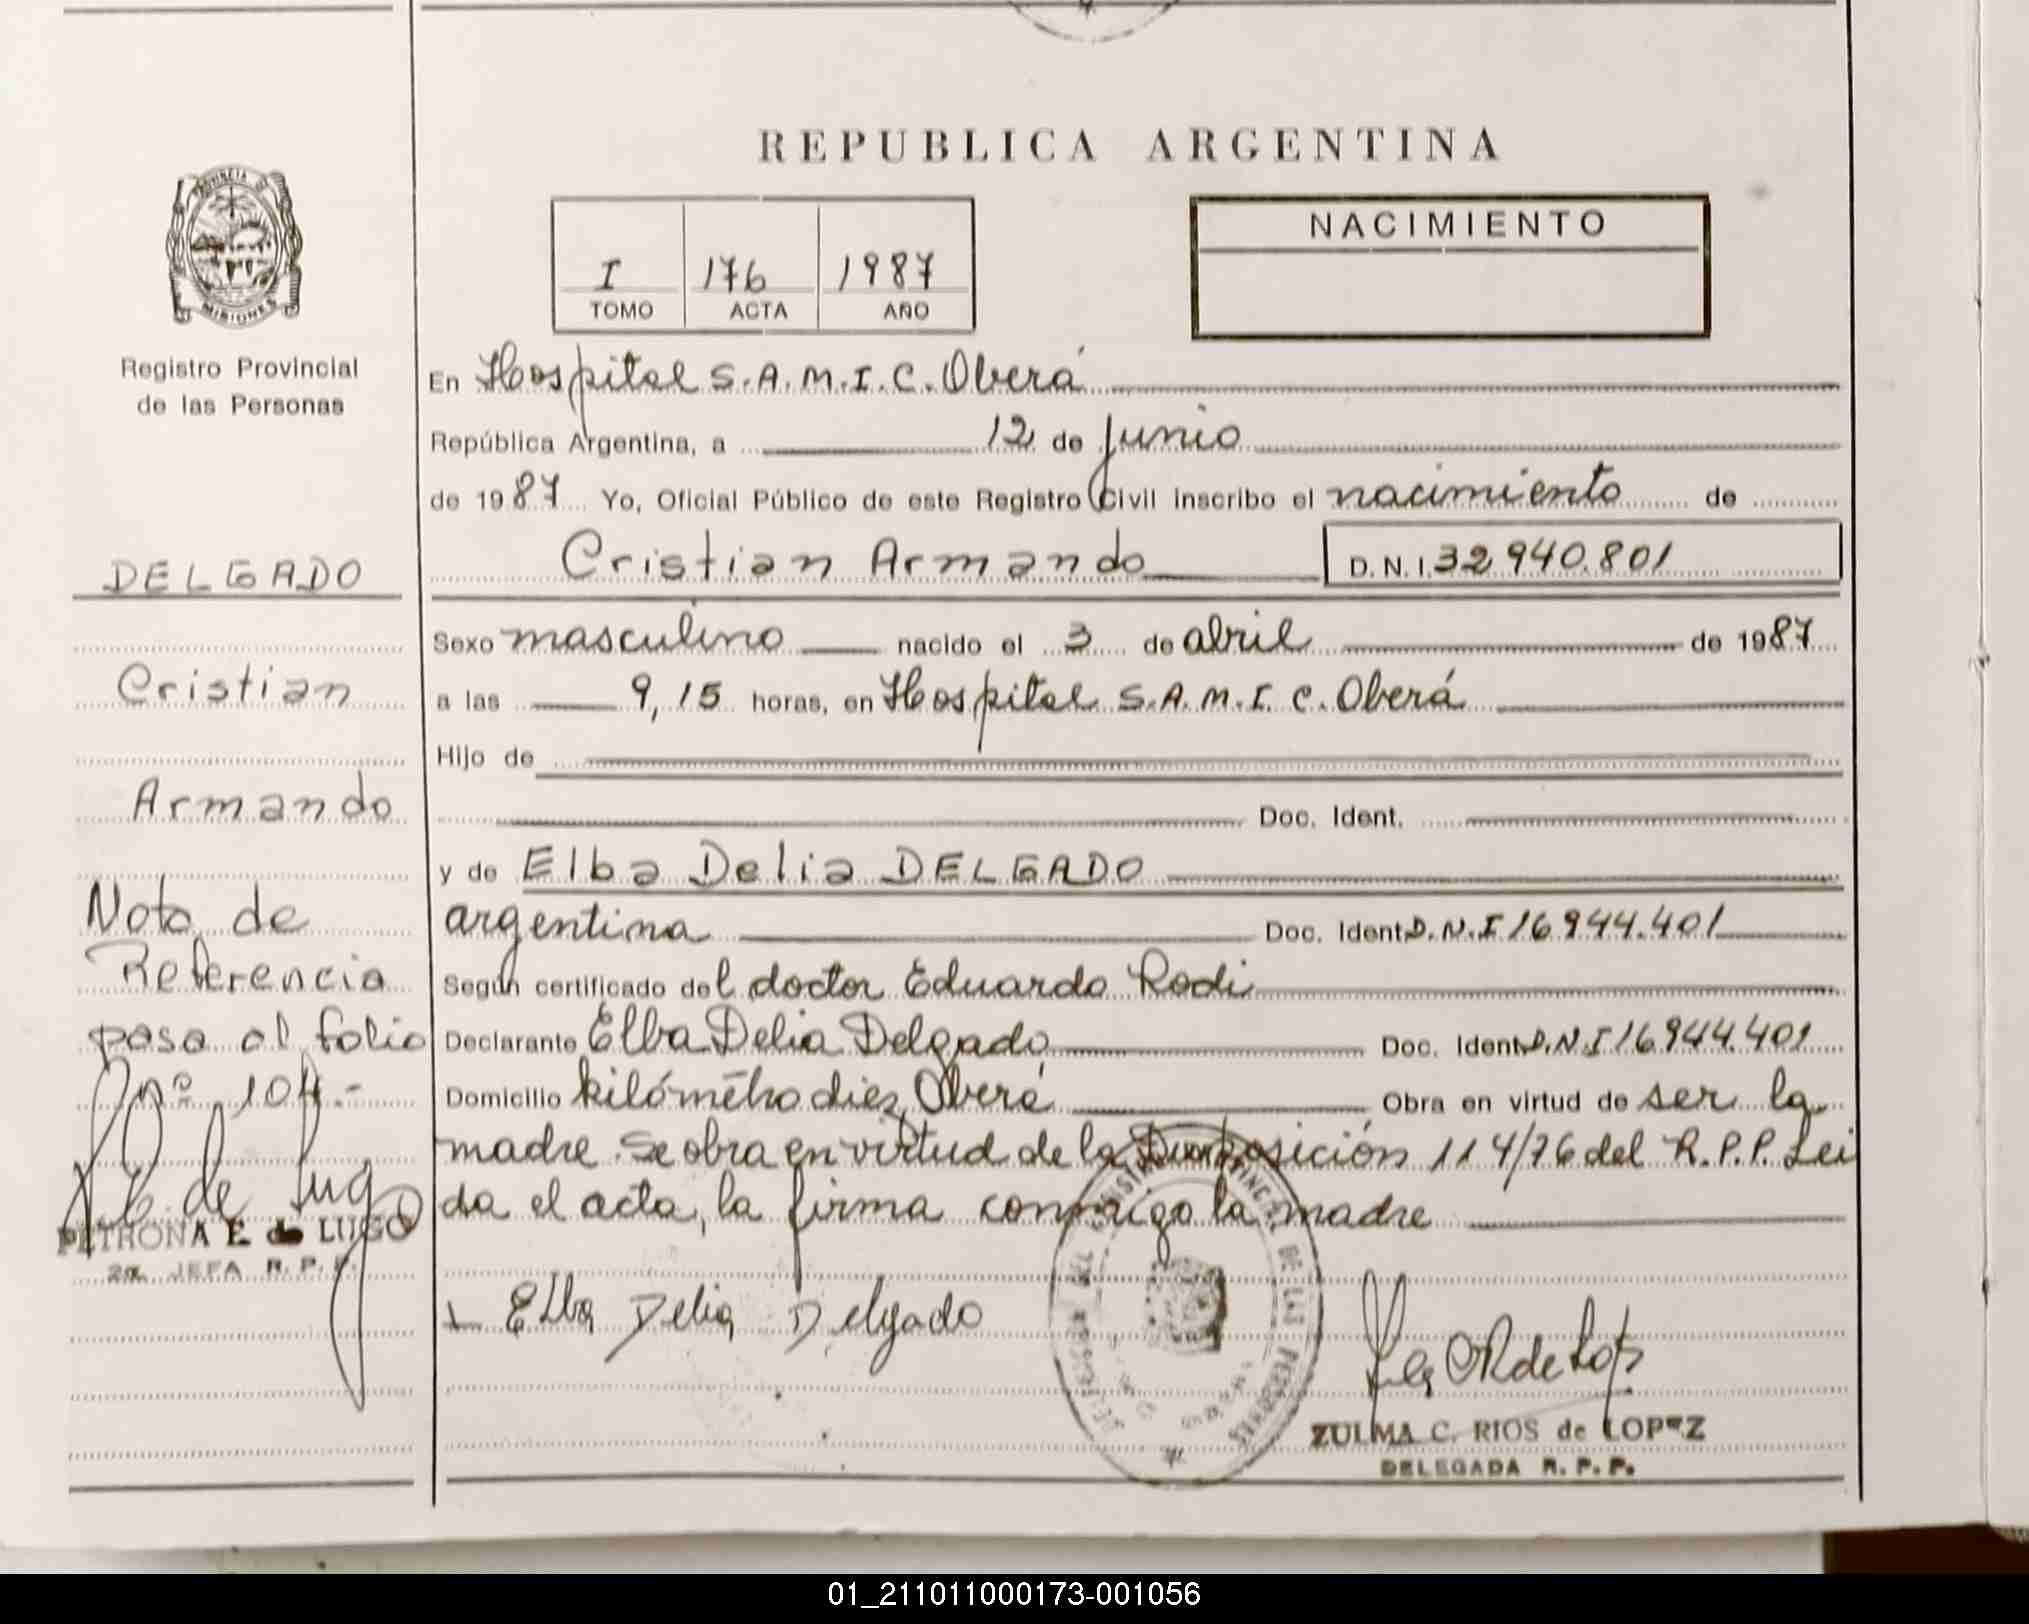 REPUBLICA ARGENTINA
PROVINCIA DE
MISIONES
Registro Provincial
de las Personas
I 176 1987
TOMO ACTA AÑO
NACIMIENTO
En Hospital S.A.M.I.C. Oberá
República Argentina, a 12 de junio
de 1987 Yo, Oficial Público de este Registro Civil inscribo el nacimiento de
Cristian Armando D.N.I. 32.940.801
Sexo masculino nacido el 3 de abril de 1987
a las 9,15 horas, en Hospital S.A.M.I.C. Oberá
Hijo de
Doc. Ident.
y de Elba Delia DELGADO
argentina Doc. Ident. D.N.I 16.944.401
Según certificado del doctor Eduardo Rodi
Declarante Elba Delia Delgado Doc. Ident. D.N.I 16.944.401
Domicilio kilómetro diez, Oberá Obra en virtud de ser la
madre. Se obra en virtud de la Disposición 114/76 del R.P.P. Lei
da el acta, la firma conmigo la madre
Elba Delia Delgado
ZULMA C. RIOS de LOPEZ
DELEGADA R.P.P.
DELGADO
Cristian
Armando
Nota de
Referencia
pasa al folio
nº 104.-
PETRONA E. de LUGO
2a. JEFA R.P.P.
01_211011000173-001056